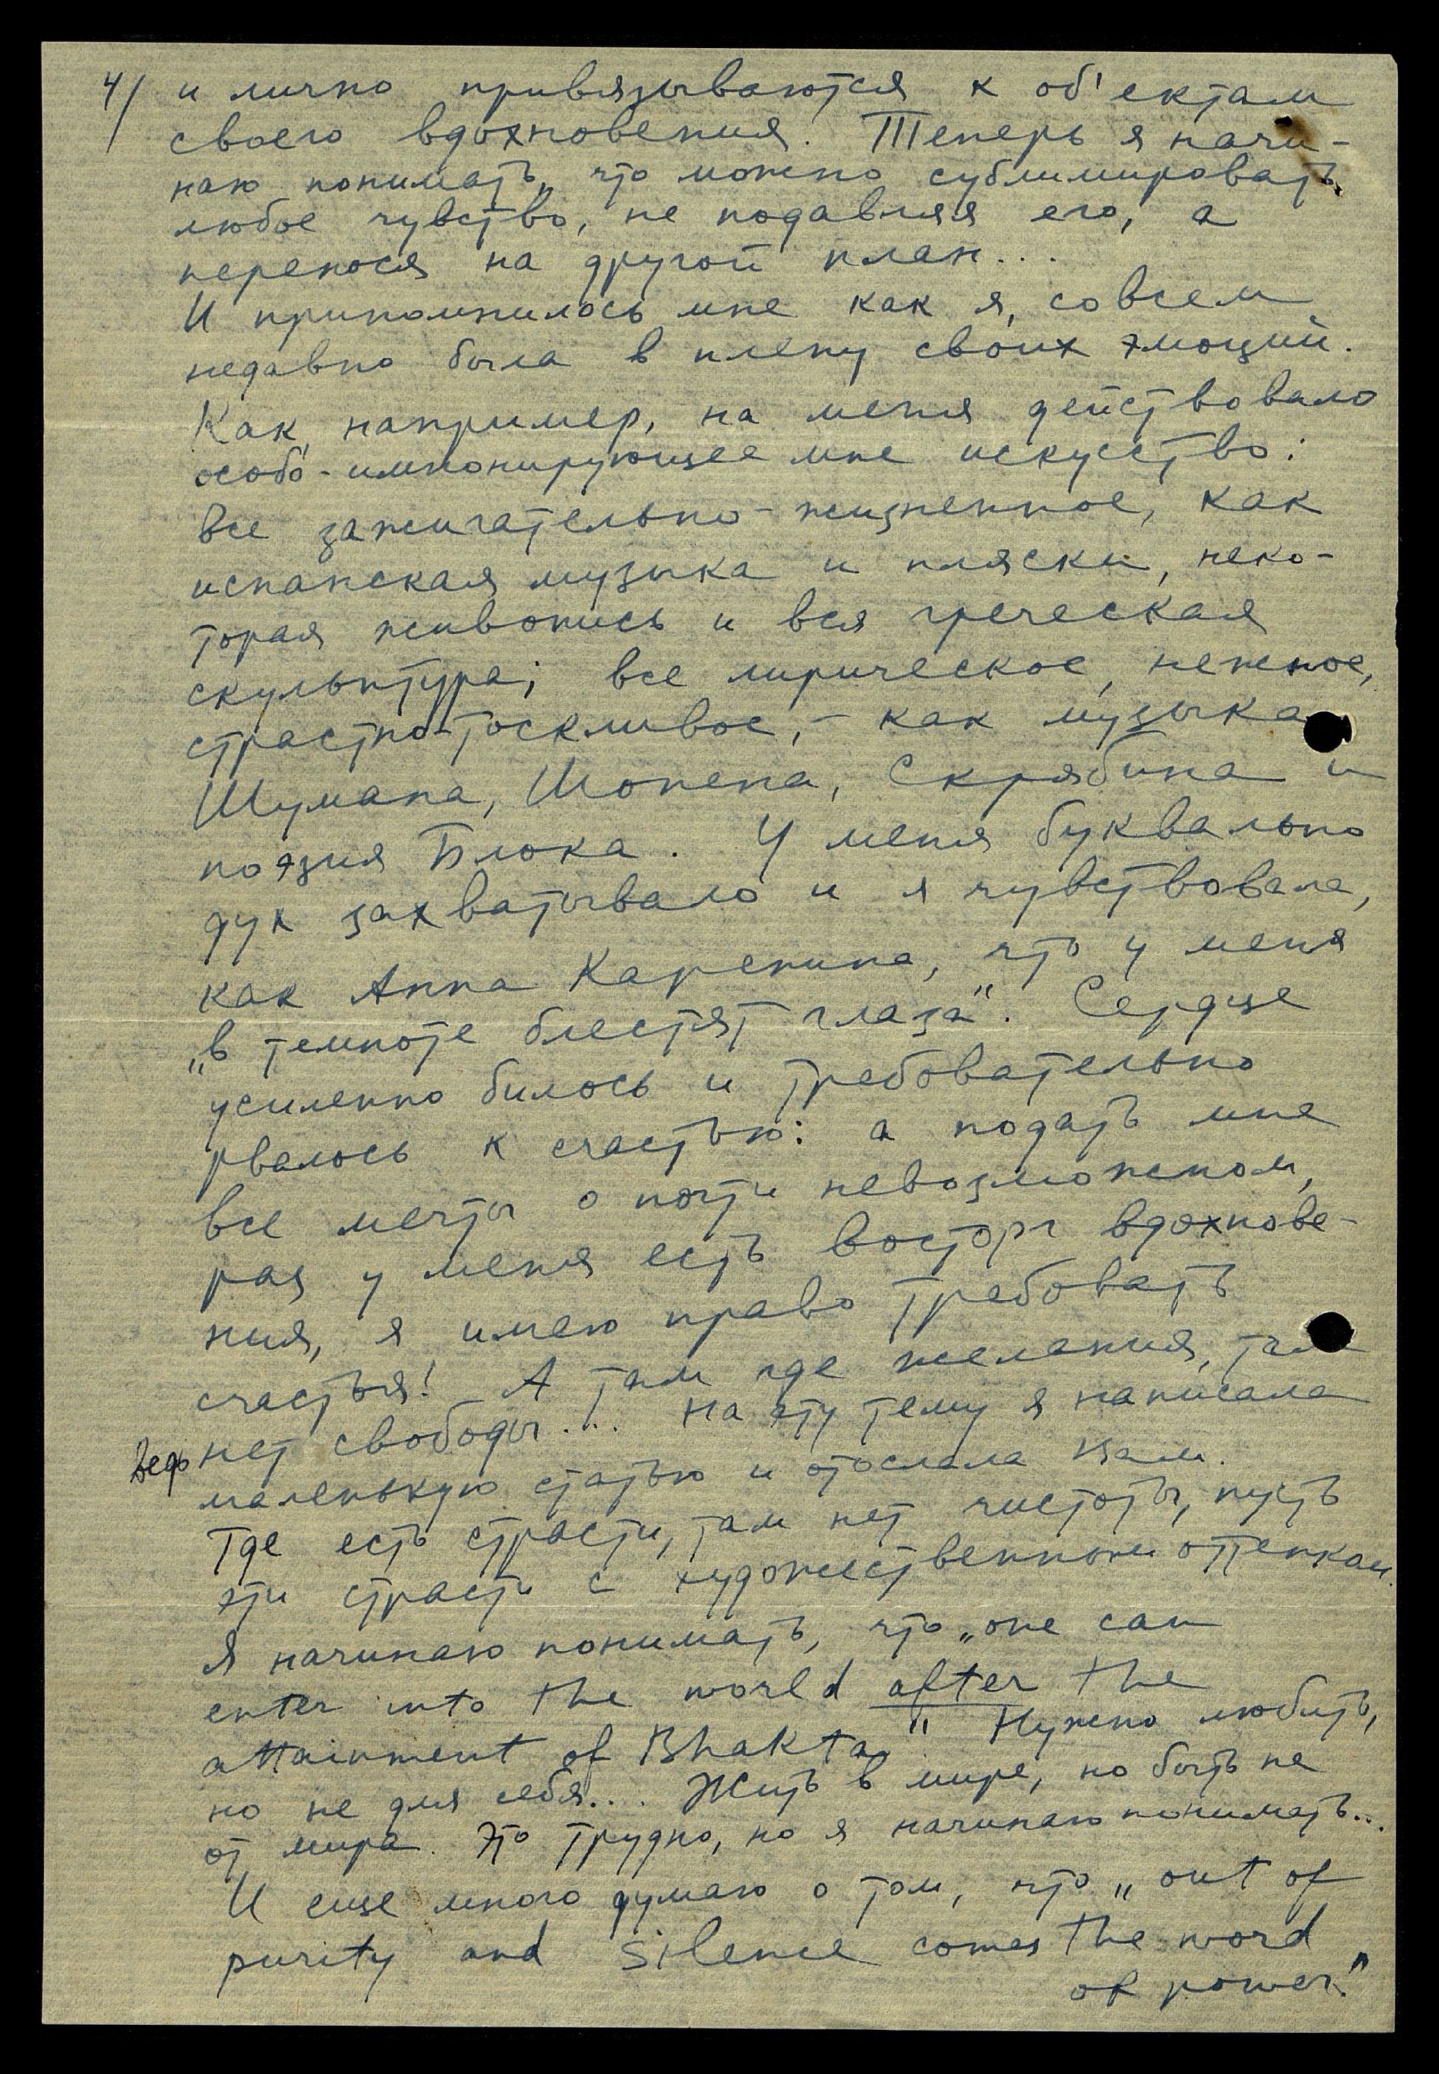 4/ и лично привязываются к об'ектам
своего вдохновения. Теперь я начи-
наю понимать, что можно сублимировать
любое чувство, не подавляя его, а
перенося на другой план...
И припомнилось мне как я, совсем
недавно была в плену своих эмоций.
Как, например, на меня действовало
особо-импонирующее мне искусство:
все зажигательно-жизненное, как
испанская музыка и пляски, неко-
торая живопись и вся греческая
скульптура; все лирическое, нежное,
страстно-тоскливое, - как музыка
Шумана, Шопена, Скрябина и
поэзия Блока. У меня буквально
дух захватывало и я чувствовала,
как Анна Каренина, что у меня
„в темноте блестят глаза". Сердце
усиленно билось и требовательно
рвалось к счастью: а подать мне
все мечты о почти невозможном,
раз у меня есть восторг вдохнове-
ния, я имею право требовать
счастья! А там где желания, там
нет свободы... На эту тему я написала
маленькую статью и отослала Вам.
Ведь Где есть страсти, там нет чистоты, пусть
эти страсти с художественным оттенком.
Я начинаю понимать, что „one can
enter into the world after the
attainment of Bhakta" Нужно любить,
но не для себя... Жить в мире, но быть не
от мира. Это трудно, но я начинаю понимать...
И еще много думаю о том, что „out of
purity and silence comes the word
of power."